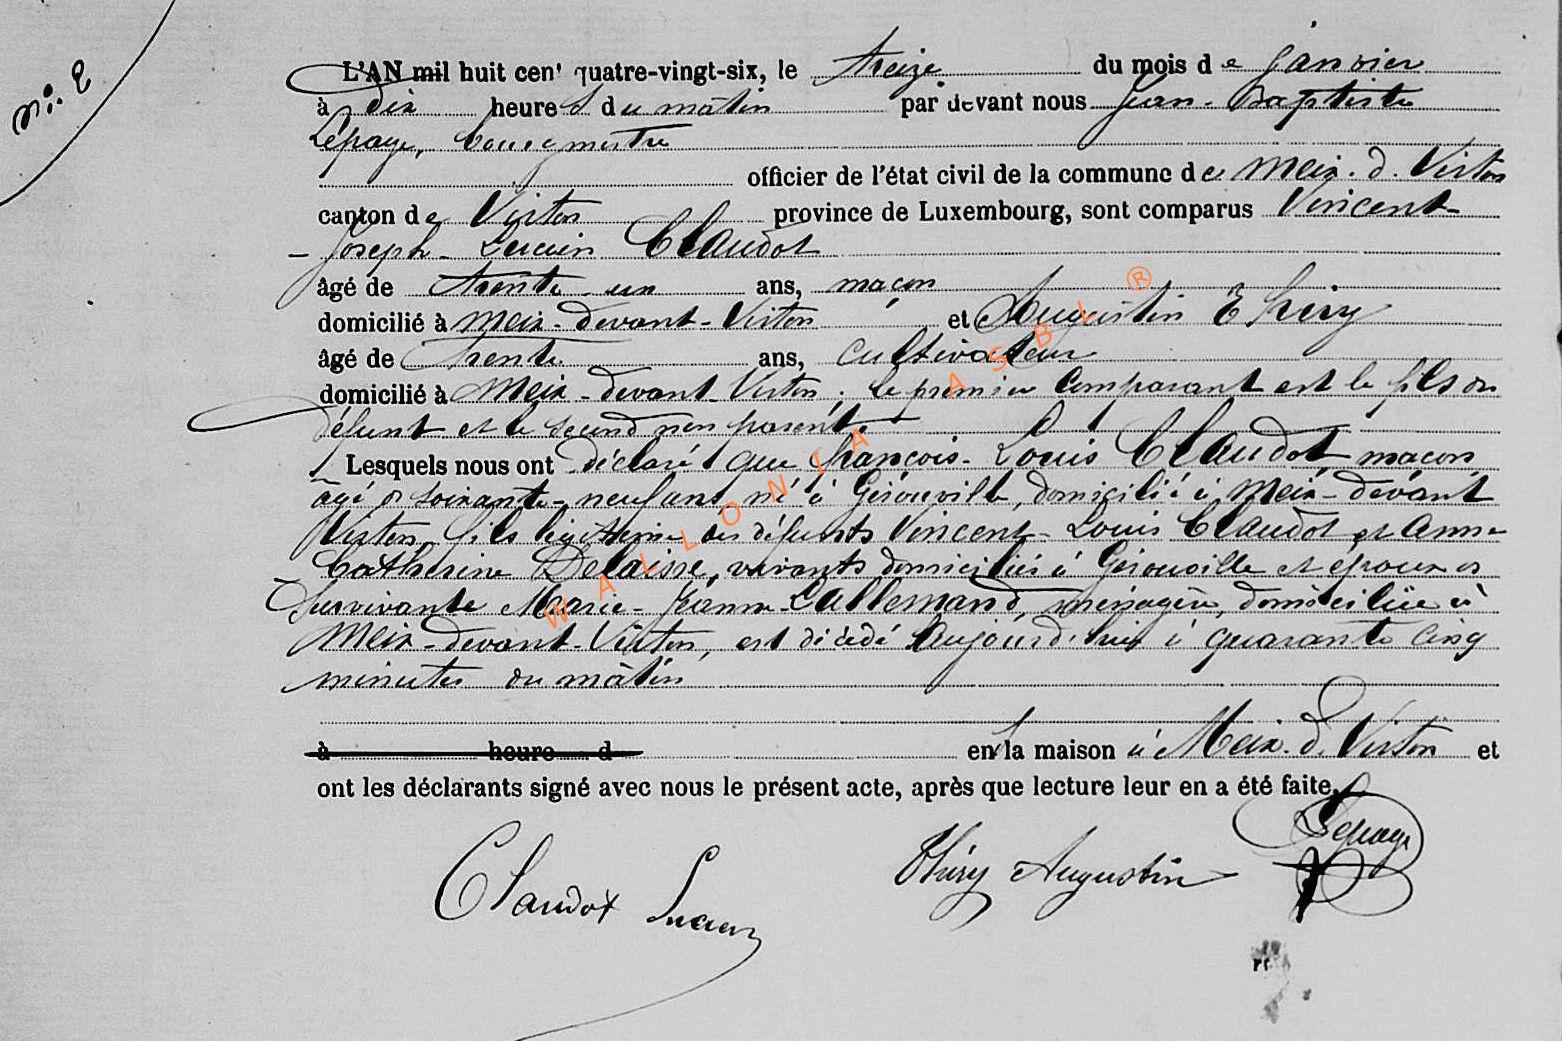 N: 2
L'AN mil huit cent quatre-vingt-six, le treize du mois de Janvier
à dix heures du matin par devant nous Jean-Baptiste
Lepage, bourgmestre
officier de l'état civil de la commune de Meix-d-Virton
canton de Virton province de Luxembourg, sont comparus Vincent-
-Joseph-Lucien Claudot
âgé de trente un ans, maçon
domicilié à Meix-devant-Virton et Augustin Thiry
âgé de trente ans, cultivateur
domicilié à Meix-devant-Virton. Le premier comparant est le fils du
défunt et le second non parent.
Lesquels nous ont déclaré que françois-Louis Claudot maçon
âgé de soixante-neuf ans, né à Gérouville, domicilié à Meix-devant
Virton, fils légitime des défunts Vincent-Louis Claudot et Anne
Catherine Delaisse, vivants domiciliés à Gérouville et époux de
survivante Marie-Jeanne Lallemand, ménagère, domiciliée à
Meix-devant-Virton, est décédé aujourd'hui à quarante cinq
minutes du matin
à heure d en la maison à Meix-d-Virton et
ont les déclarants signé avec nous le présent acte, après que lecture leur en a été faite.
Claudot Lucien
Thiry Augustin
Lepage
WALLONIA ASBL ®